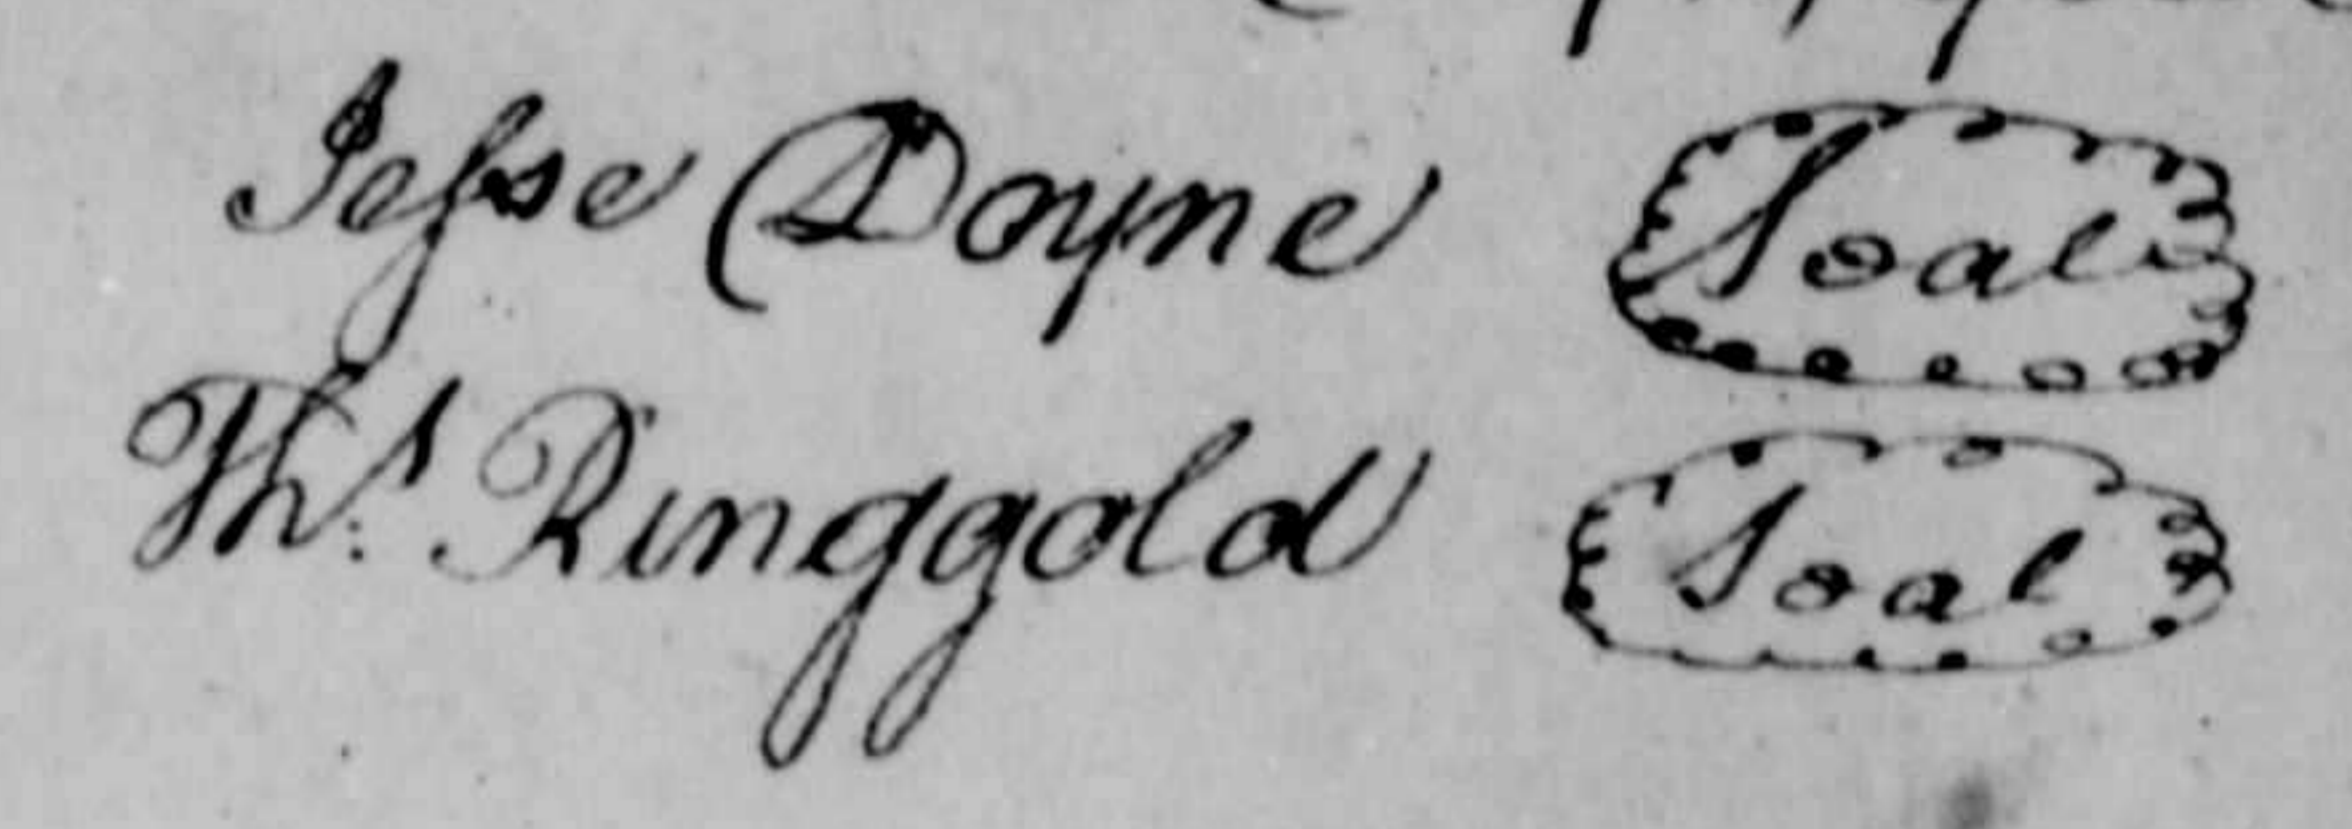 Jesse Doyne Seal
Ths. Ringgold Seal